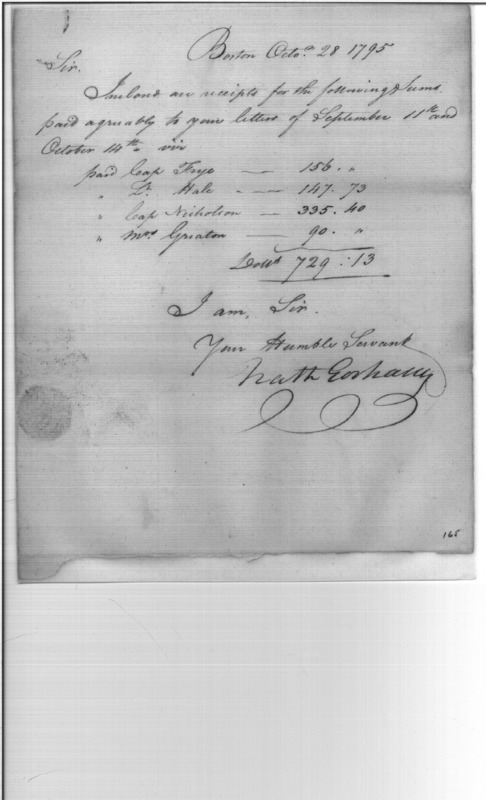 Boston Octo.r 28 1795
Sir.
Inclosd are receipts for the following Sums
paid agreeably to your letters of September 11th and
October 14th viz
paid Cap Frye — 156. "
" Lt. Hale " — 147. 73
" Cap Nicholson — 335. 40
" Mrs Greaton — 90. "
Dolls 729 : 13
I am, Sir.
Your Humble Servant
Nath Gorham
165